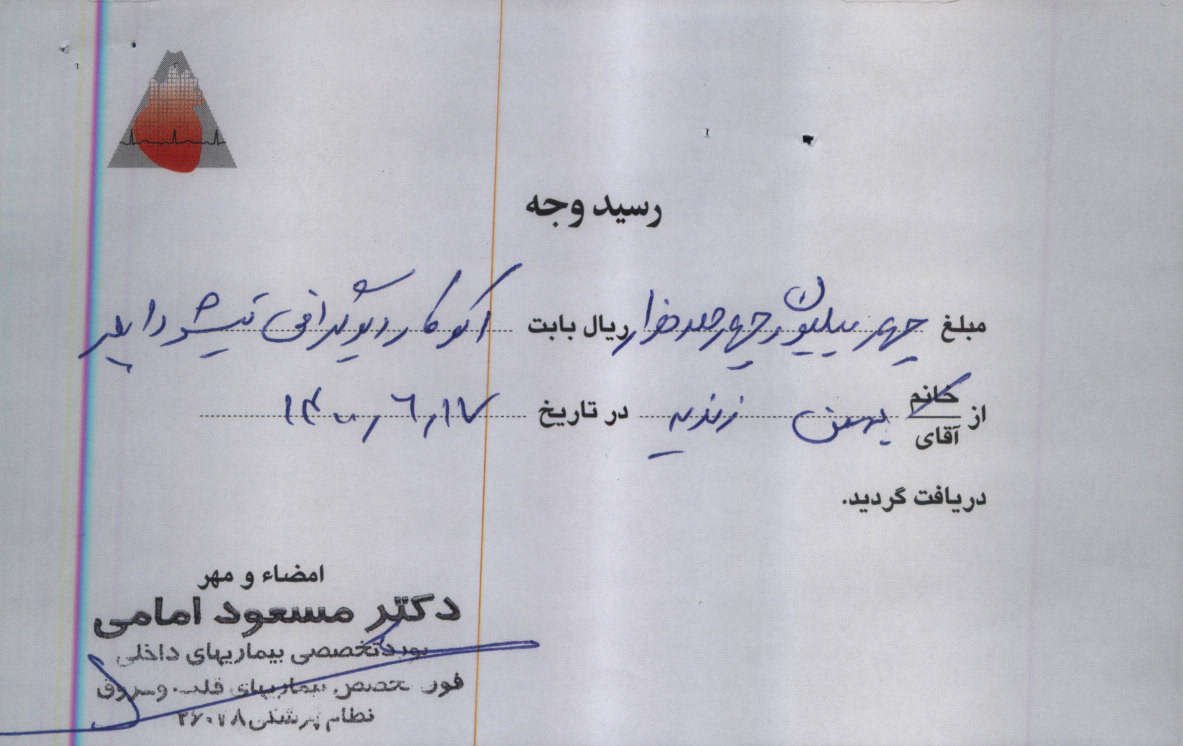 رسید وجه
مبلغ چهار میلیون و چهارصد هزار ریال بابت اکوکاردیوگرافی تیشو داپلر
از خانم آقای بهمن زندیه در تاریخ ۱۴۰۰/۶/۱۷
دریافت گردید.
امضاء و مهر
دکتر مسعود امامی
بورد تخصصی بیماریهای داخلی
فوق تخصص بیماریهای قلب و عروق
نظام پزشکی